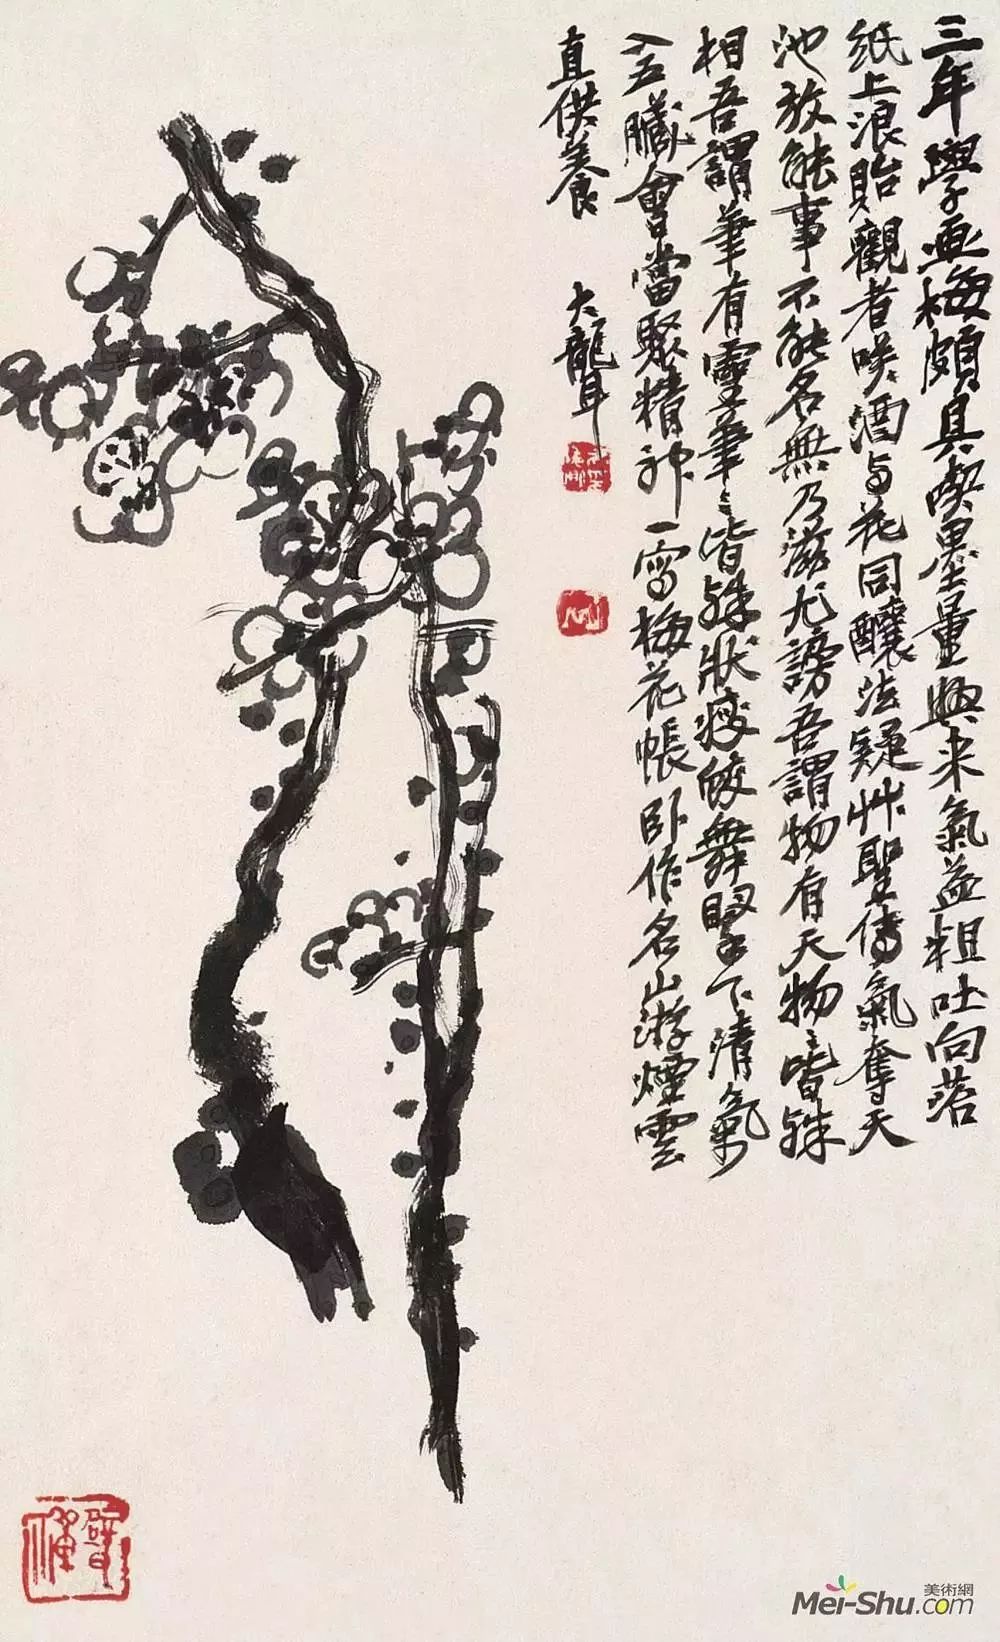 三年學画梅頗具喫墨量興来氣益粗吐向苔
紙上浪貽觀者咲酒与花同釀法疑艸聖傳氣奪天
池放能事不能名無乃滋尤謗吾謂物有天物〻皆殊
相吾謂筆有靈筆〻皆殊狀瘦蛟舞腕下清氣
入五臟會當聚精神一寫梅花帳卧作名山游煙雲
直供養 大聾
美術網
Mei-Shu.com